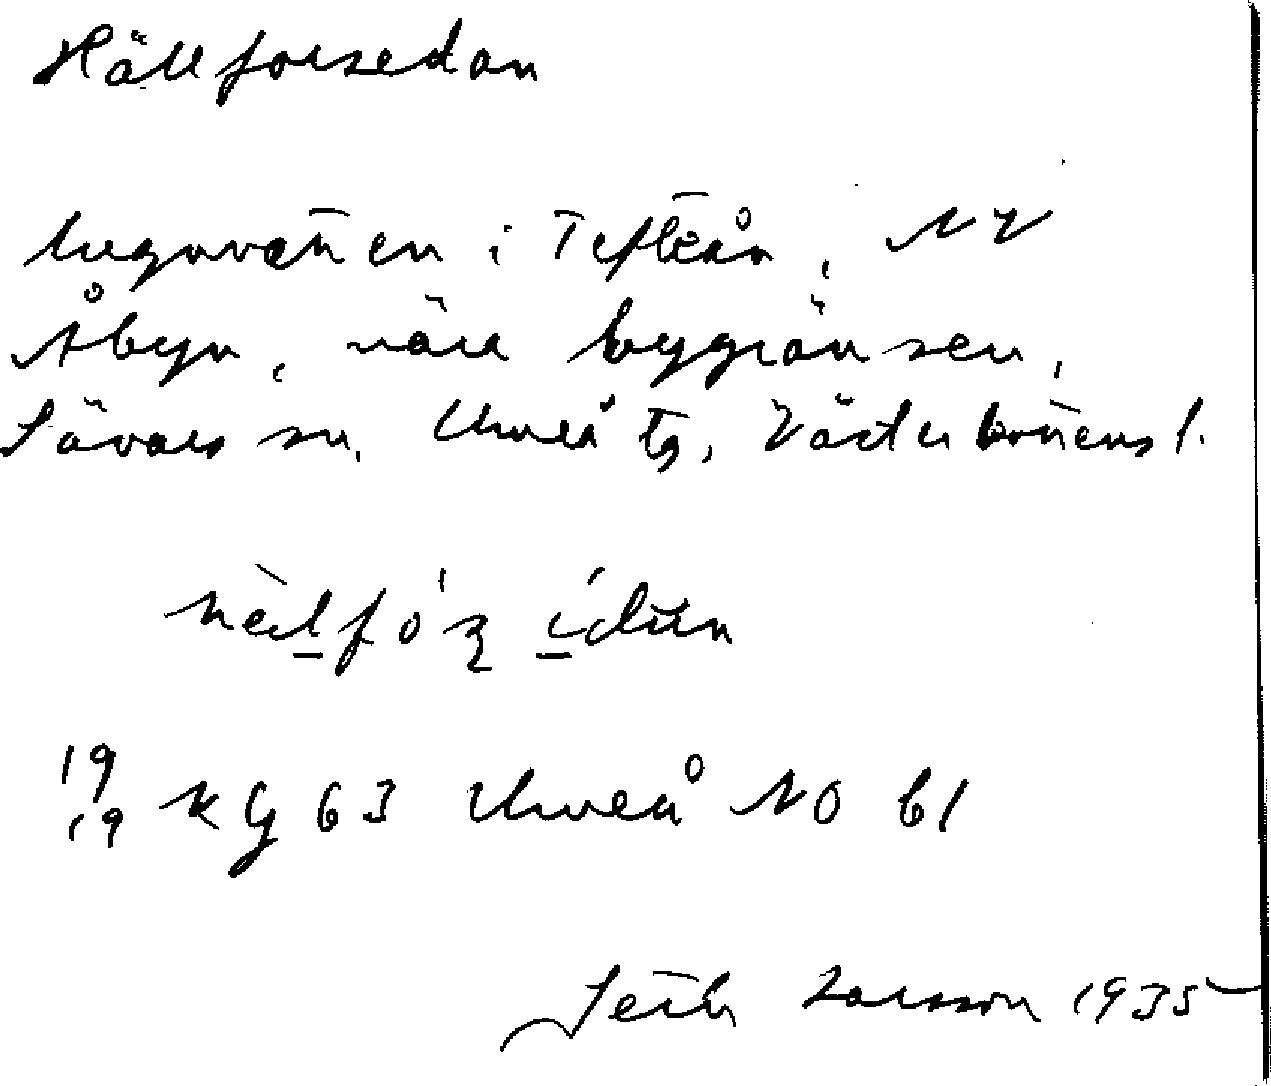 Hällforsedan
lugnvatten i Tefteån, NV
Åbyn, nära bygränsen,
Sävars sn, Umeå tg, Västerbottens l.
19/19 KG 63 Umeå NO b1
Larsson 1935